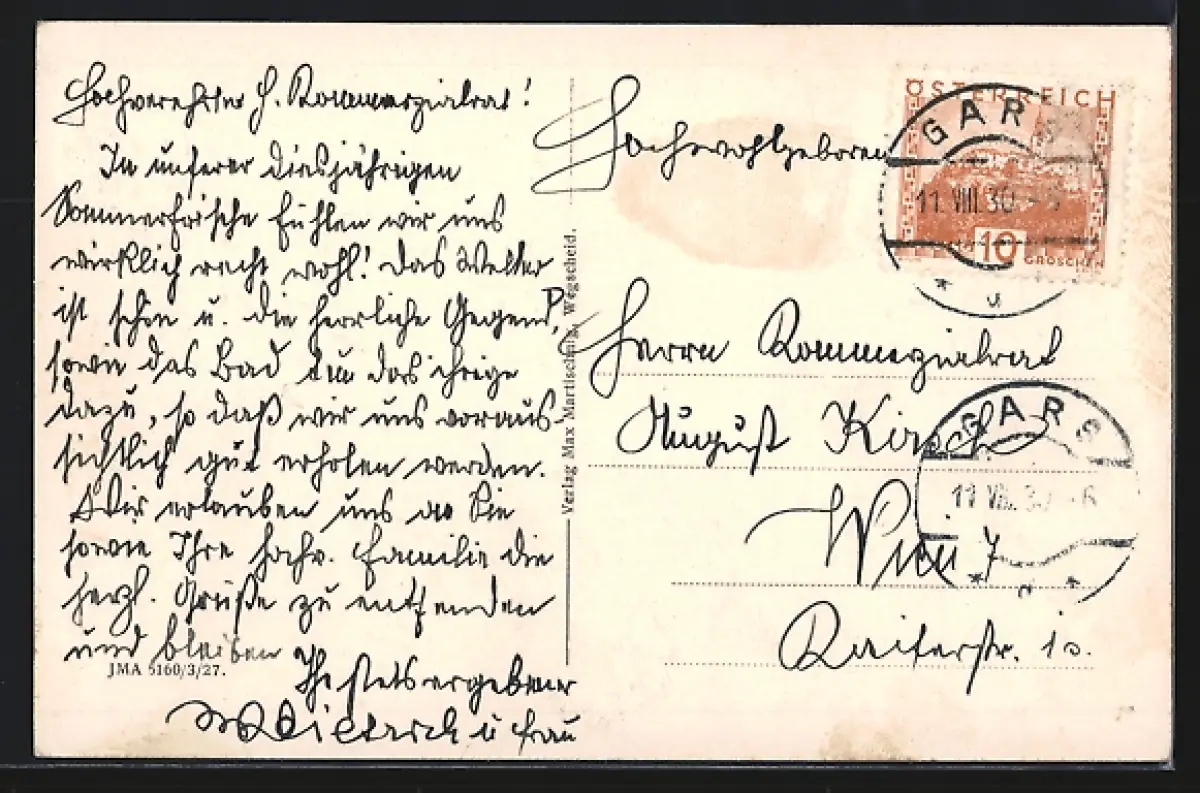 Hochverehrter H. Kommerzialrat!
In unserer diesjährigen
Sommerfrische fühlen wir uns
wirklich recht wohl! Das Wetter
ist schön u. die herrliche Gegend,
sowie das Bad tun das ihrige
dazu, so daß wir uns voraus-
sichtlich gut erholen werden.
Wir erlauben uns an Sie
sowie Ihre hochv. Familie die
herzl. Grüße zu entsenden
und bleiben
JMA 5160/3/27.
Ihr stets ergebener
u Frau
Verlag Max Martischnig, Wegscheid.
Hochwohlgeboren
ÖSTERREICH
10
GROSCHEN
GARS
11. VIII. 30 - 6
Herrn Kommerzialrat
August Kirsch
Wien 7
GARS
11. VIII. 30 - 6